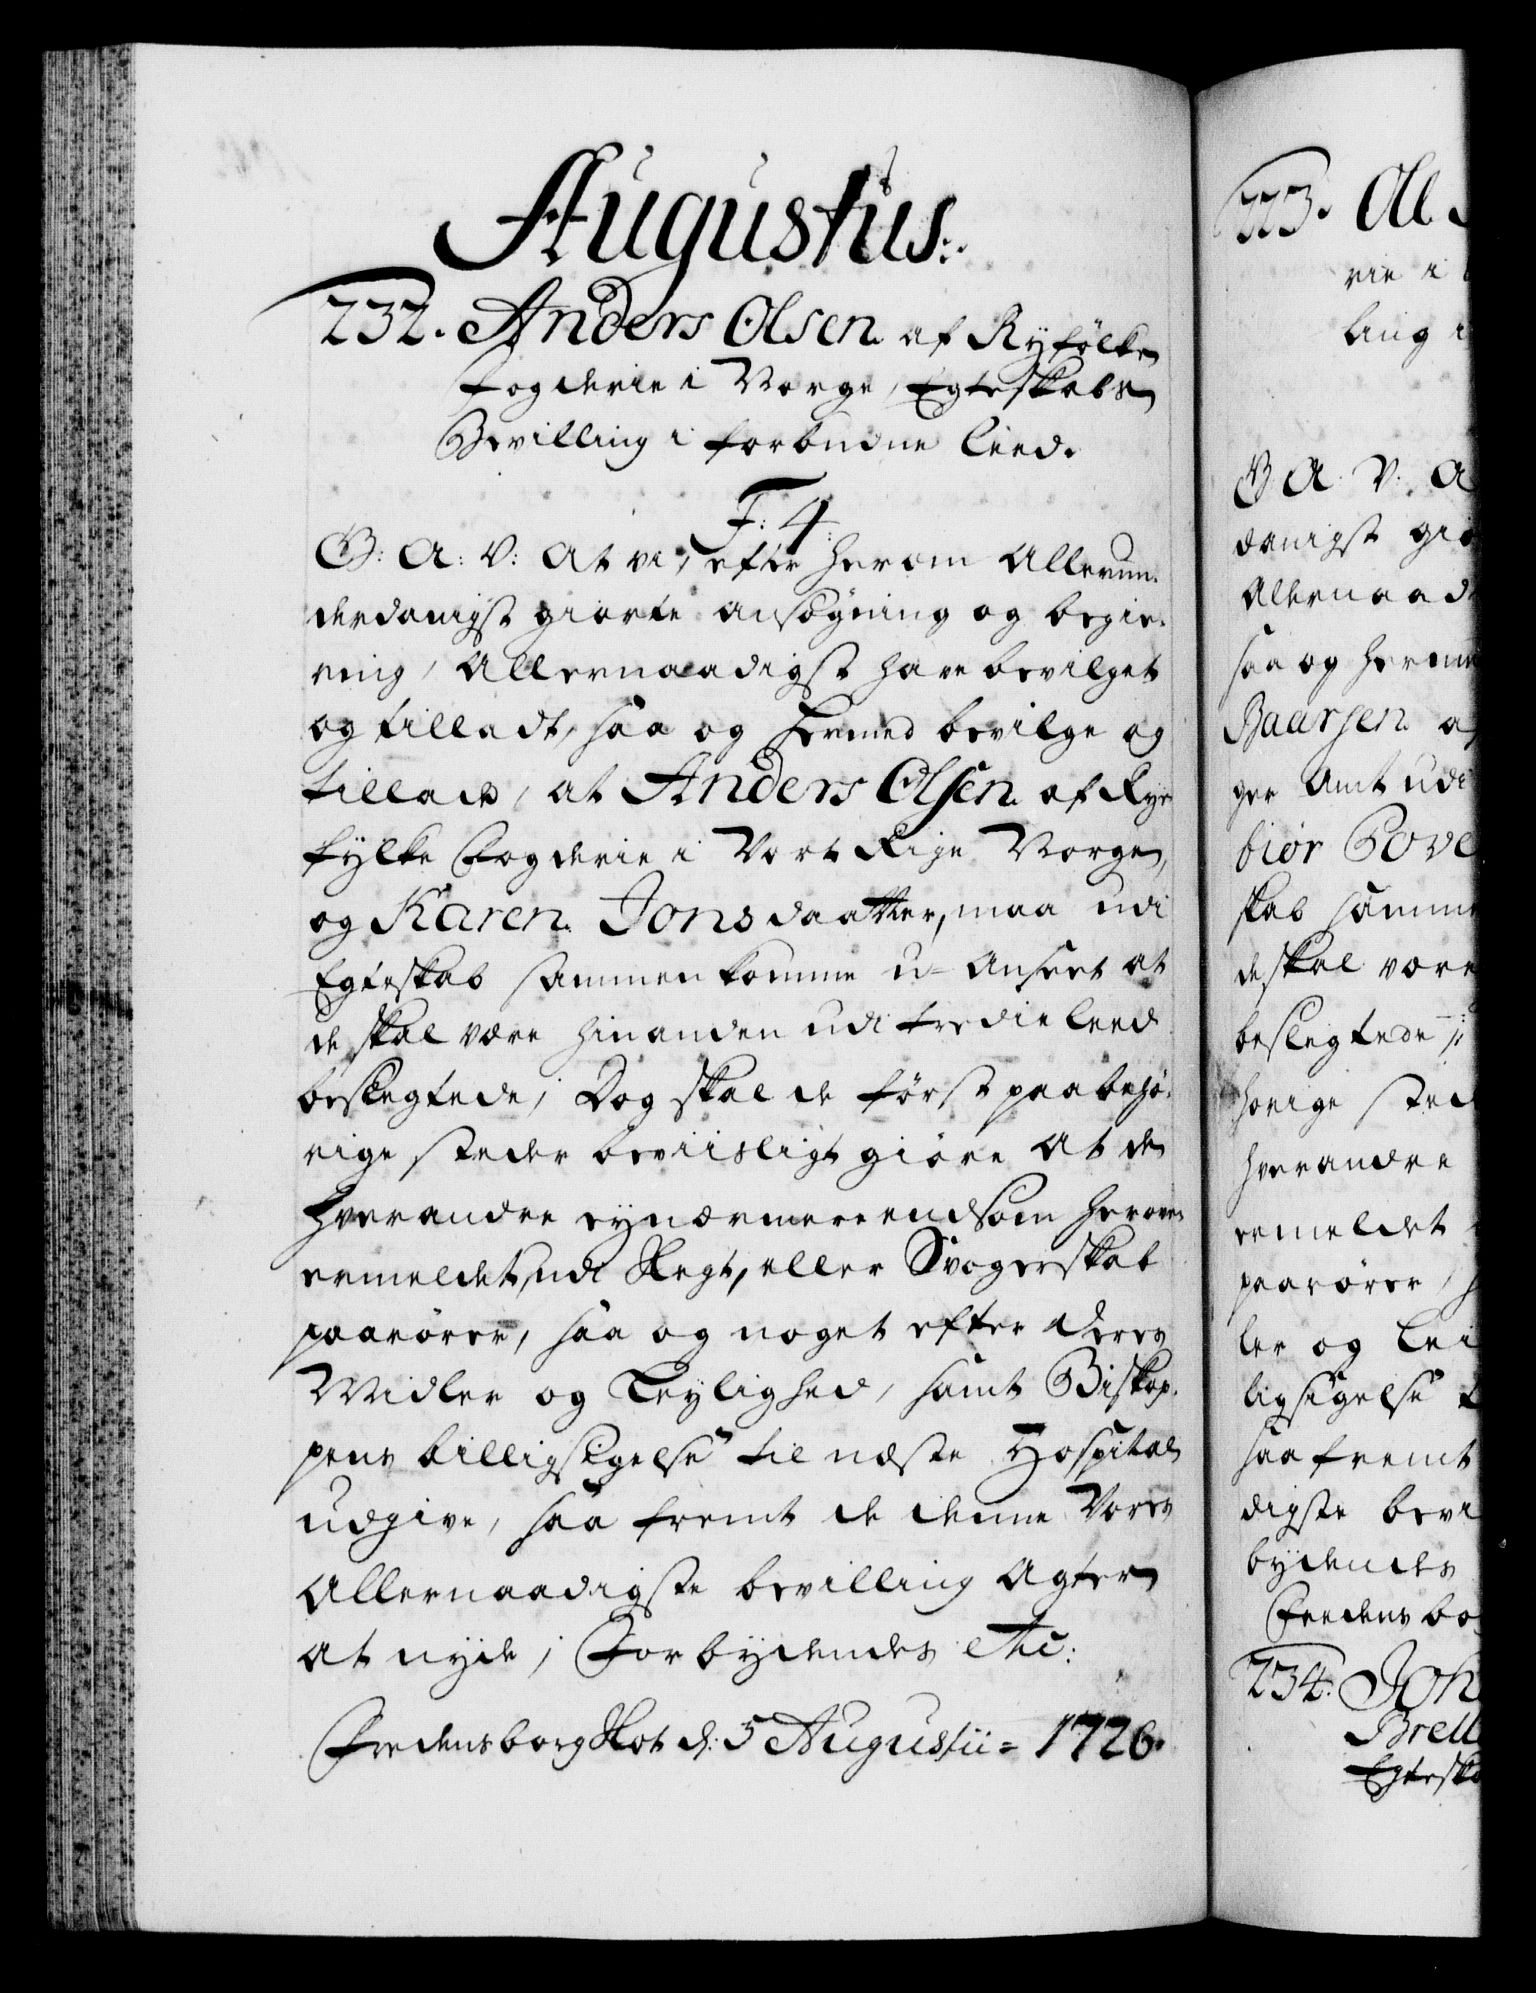 Augustus:
232. Anders Olsen af Ryfølke
fogderie i Norge, Egteskabs
Bevilling i forbudne Leed.
F: 4.
G: A: V: At vi, efter herom Allerun-
derdanigst giorte ansøgning og begie-
ring, Allernaadigst have bevilget
og tilladt, saa og hermed bevilge og
tillade, at Anders Olsen af Rye
fylke Fogderie i Vort Rige Norge,
og Karen Jonsdaatter, maa udi
Egteskab sammenkomme u-anseet at
de skal være hinanden udi tredie leed
beslegtede; Dog skal de først paa behø-
rige steder beviisligt giøre at de
hverandre ey nærmere end som herove
ermeldet, udi Slegt, eller Svogerskab
paarører, saa og noget efter deres
Midler og Leylighed, samt Biskop-
pens billigsigelse til næste Hospital
udgive, saa fremt de denne Vores
Allernaadigste bevilling agter
at nyde; Forbydendes etc:
Fredensborg Slot d: 5 Augustii = 1726.
Ole
rie i
ling i
G. A. V. A
danigst gio
Allernaad
saa og herme
Baarsen af
ger Amt udi
biør Pove
skab samme
de skal være
beslegtede
horige sted
hverandre
ermeldet
paarører,
ler og Lei
ligsigelse
saa fremt
digste bevi
bydendes
Fredensbo
234. Joh
Brell
Egteska